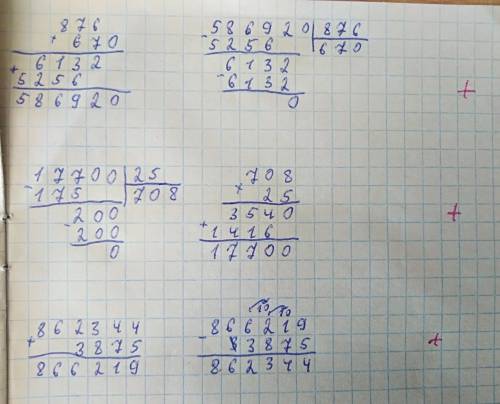 876
× 670
6132
+ 5256
586920
- 586920 | 876
5256 670
6132
- 6132
0
+
- 17700 | 25
175 708
200
- 200
0
708
× 25
3540
+ 1416
17700
+
862344
+ 3875
866219
10 10
- 866219
3875
862344
+